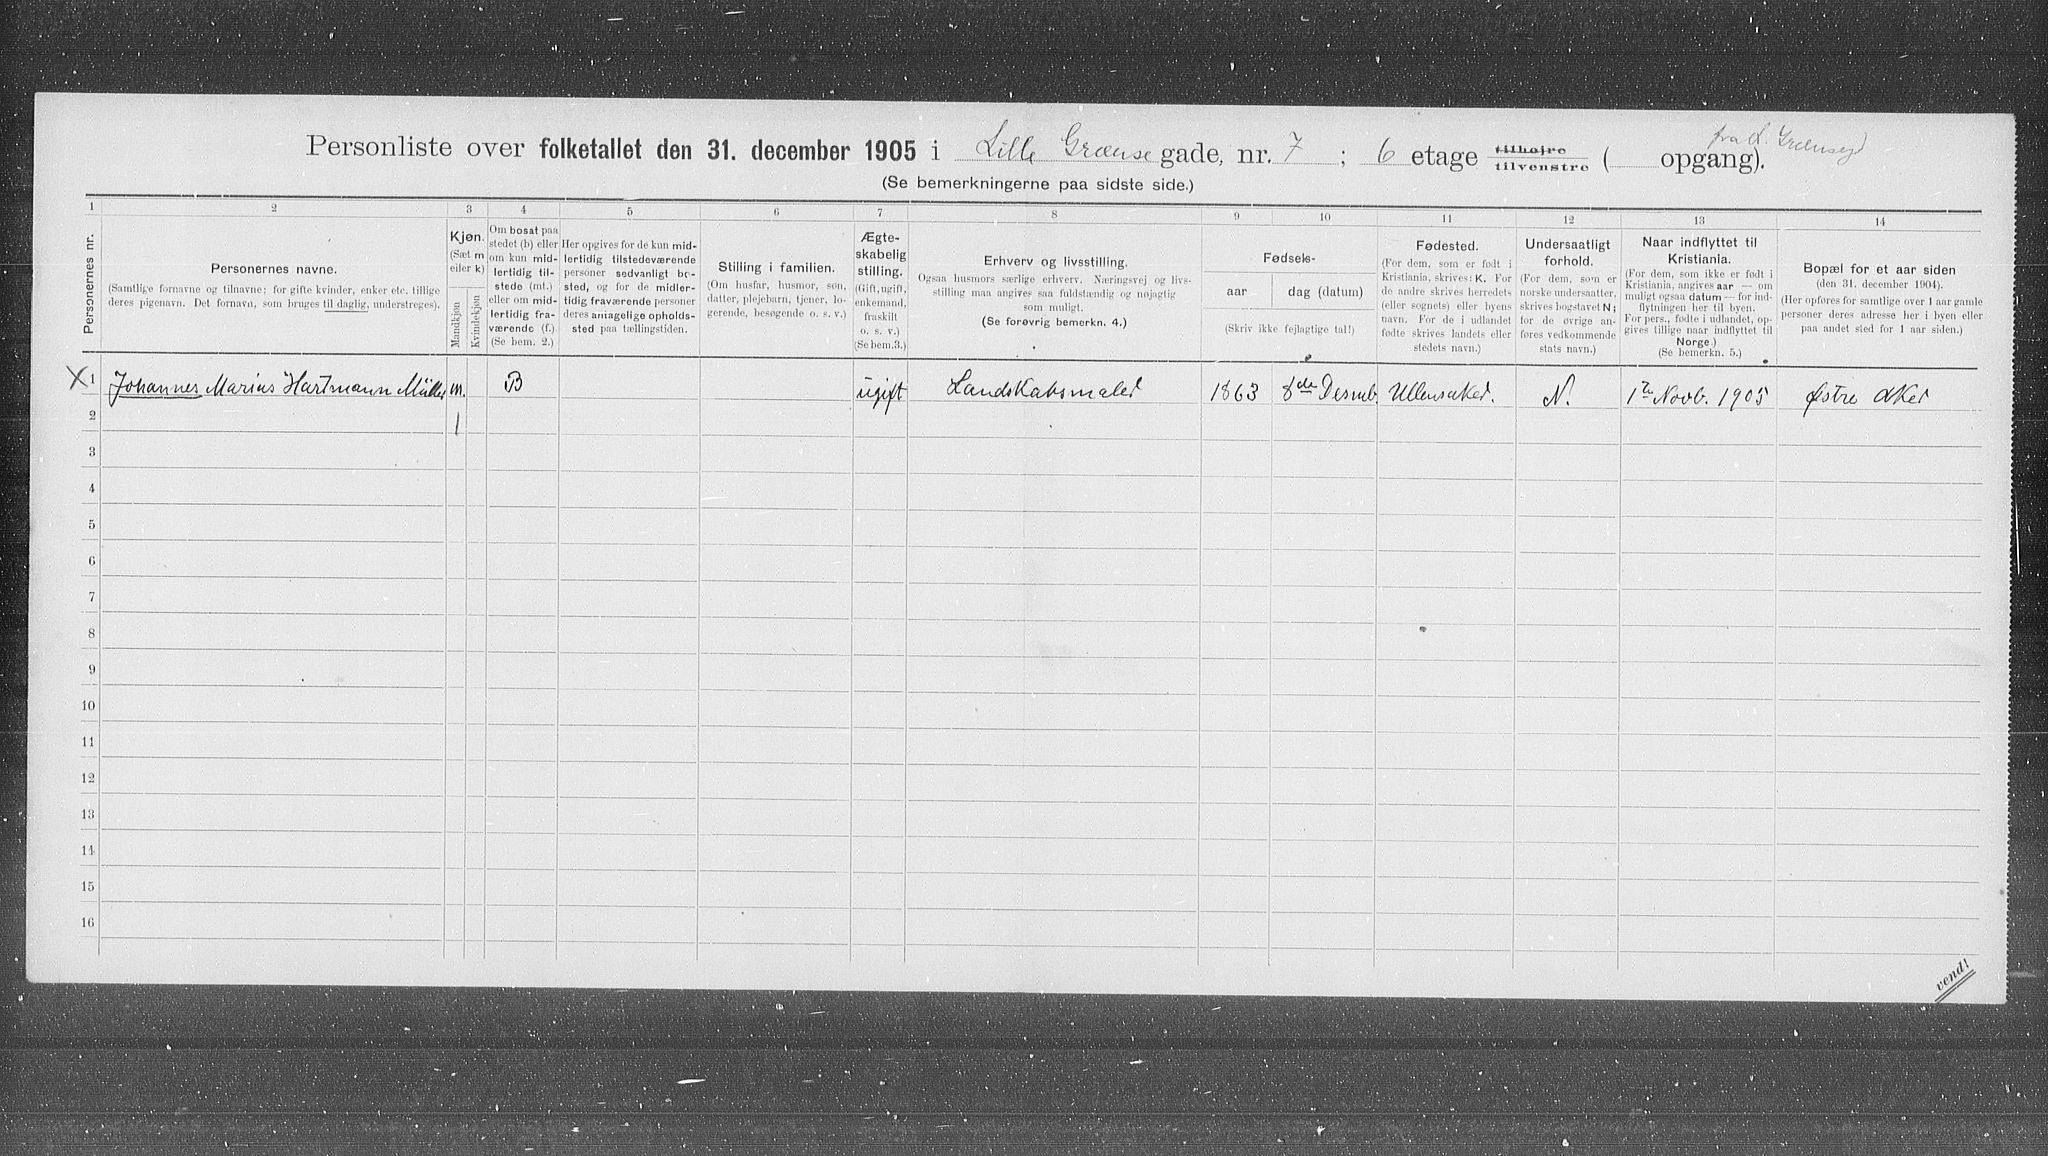 Personliste over folketallet den 31. december 1905 i Lille Grænse gade, nr. 7 ; 6 etage tilhøjre tilvenstre ( opgang).
(Se bemerkningerne paa sidste side.)
1 2 3 4 5 6 7 8 9 10 11 12 13 14
Personernes nr.
Personernes navne.
(Samtlige fornavne og tilnavne; for gifte kvinder, enker etc. tillige
deres pigenavn. Det fornavn, som bruges til daglig, understreges).
Kjøn.
(Sæt m
eller k)
Mandkjøn
Kvindekjøn
Om bosat paa
stedet (b) eller
om kun mid-
lertidig til-
stede (mt.)
eller om mid-
lertidig fra-
værende (f.)
(Se bem. 2.)
Her opgives for de kun mid-
lertidig tilstedeværende
personer sedvanligt bo-
sted, og for de midler-
tidig fraværende personer
deres antagelige opholds-
sted paa tællingstiden.
Stilling i familien.
(Om husfar, husmor, søn,
datter, plejebarn, tjener, lo-
gerende, besøgende o. s. v.)
Ægte-
skabelig
stilling.
(Gift, ugift,
enkemand,
fraskilt
o. s. v.)
(Se bem.3.)
Erhverv og livsstilling.
Ogsaa husmors særlige erhverv. Næringsvej og livs-
stilling maa angives saa fuldstændig og nøjagtig
som muligt.
(Se forøvrig bemerkn. 4.)
Fødsels-
aar
dag (datum)
(Skriv ikke fejlagtige tal!)
Fødested.
(For dem, som er født i
Kristiania, skrives: K. For
de andre skrives herredets
(eller sognets) eller byens
navn. For de i udlandet
fødte skrives landets eller
stedets navn.)
Undersaatligt
forhold.
(For dem, som er
norske undersaatter,
skrives bogstavet N;
for de øvrige an-
føres vedkommende
stats navn.)
Naar indflyttet til
Kristiania.
(For dem, som ikke er født i
Kristiania, angives aar — om
muligt ogsaa datum — for ind-
flytningen her til byen.
For pers., fødte i udlandet, op-
gives tillige naar indflyttet til
Norge.)
(Se bemerkn. 5.)
Bopæl for et aar siden
(den 31. december 1904).
(Her opføres for samtlige over 1 aar gamle
personer deres adresse her i byen eller
paa andet sted for 1 aar siden.)
X 1 Johannes Marius Hartmann Müller m. B ugift Landskabsmaler 1863 8de Desmb. Ullensaker. N. 1te Novb. 1905 Østre Aker
2 1
3
4
5
6
7
8
9
10
11
12
13
14
15
16
vend!